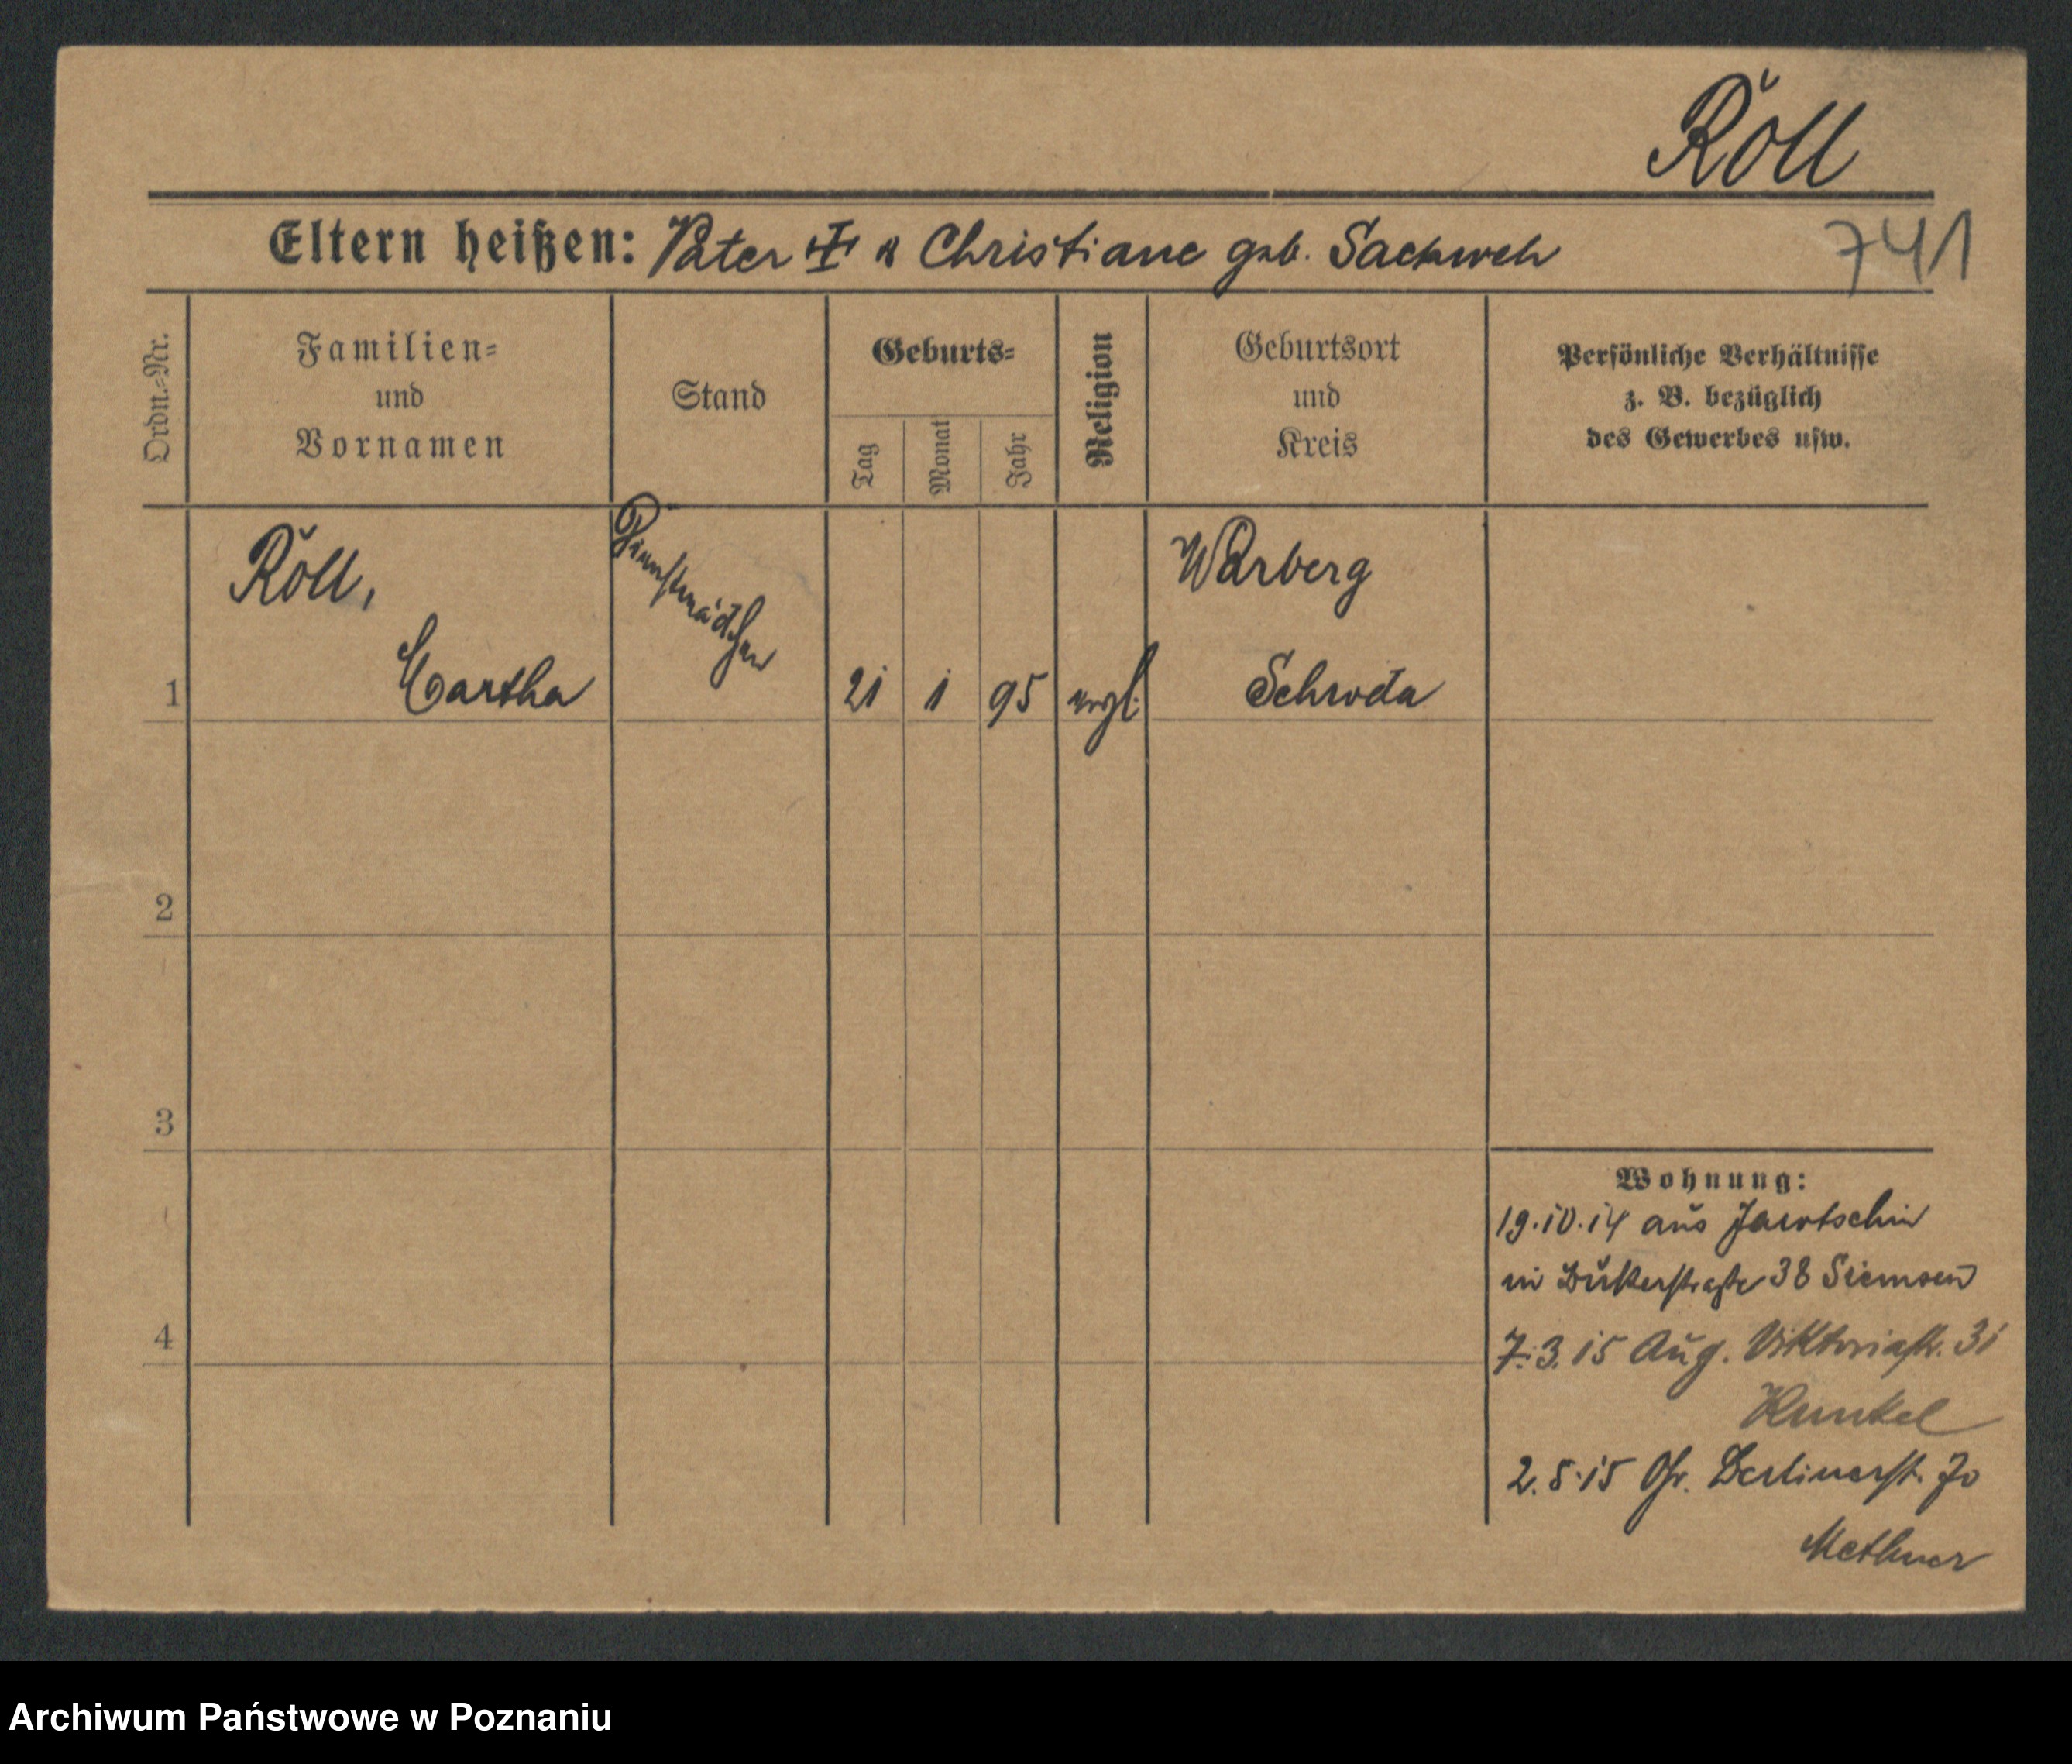 Röll
Eltern heißen: Vater † & Christiane geb. Sackweh
741
Ordn.-Nr.
Familien-
und
Vornamen
Stand
Geburts-
Tag
Monat
Jahr
Religion
Geburtsort
und
Kreis
Persönliche Verhältnisse
z. B. bezüglich
des Gewerbes usw.
1
Röll,
Martha
Dienstmädchen
21 1 95 evgl.
Warberg
Schroda
2
3
4
Wohnung:
19.10.14 aus Jarotschin
in Bukerstraße 38 Siemsen
7.3.15 Aug. Viktoriastr. 31
Kunkel
2.5.15 Gr. Berlinerst. 70
Methner
Archiwum Państwowe w Poznaniu